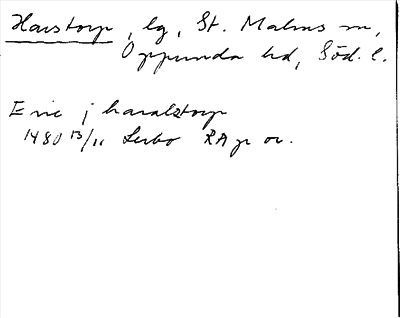 Harstorp, by, St. Malms sn,
Oppunda hd, Söd. l.
Eric j haralstorp
1480 13/11 Lerbo RAp or.